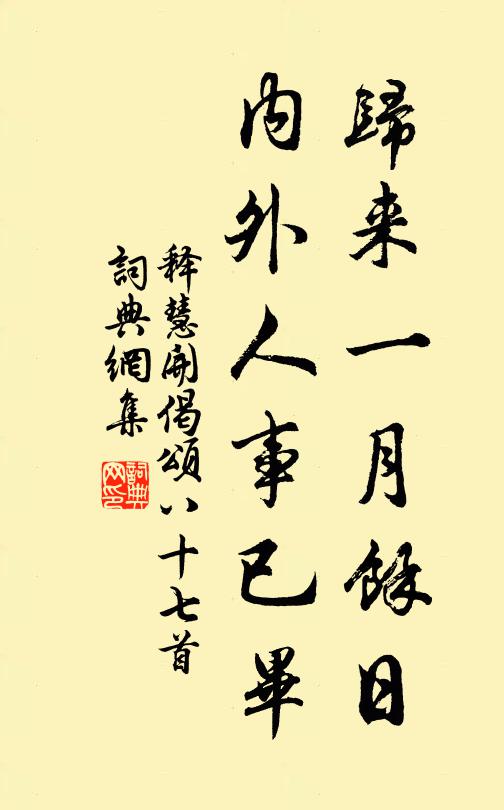 歸来一月餘日
内外人事已畢
释慧開偈頌八十七首
詞典網集
詞典
网印